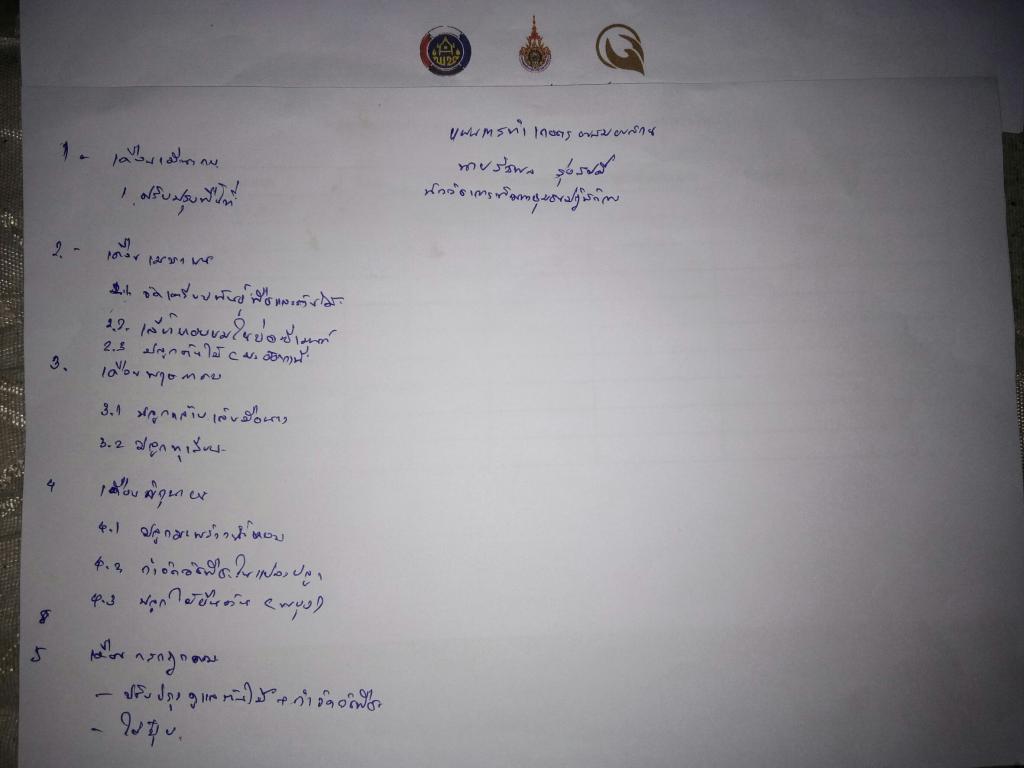 แผนการทำเกษตรผสมผสาน
นาย
นักวิชาการพัฒนาชุมชนปฏิบัติการ
1 - เดือนมีนาคม
1. ปรับปรุงพื้นที่
2. - เดือนเมษายน
2.1 จัดเตรียมพันธุ์พืชและต้นไม้
2.2. เลี้ยงหอยขมในบ่อซีเมนต์
2.3 ปลูกต้นไม้
3. เดือนพฤษภาคม
3.1 ปลูกกล้วยเล็บมือนาง
3.2 ปลูกทุเรียน
4 เดือนมิถุนายน
4.1 ปลูกมะพร้าวน้ำหอม
4.2 กำจัดวัชพืชในแปลงปลูก
4.3 ปลูกไม้ยืนต้น (พะยูง)
5 เดือนกรกฎาคม
- ปรับปรุง ดูแลต้นไม้ + กำจัดวัชพืช
- ใส่ปุ๋ย